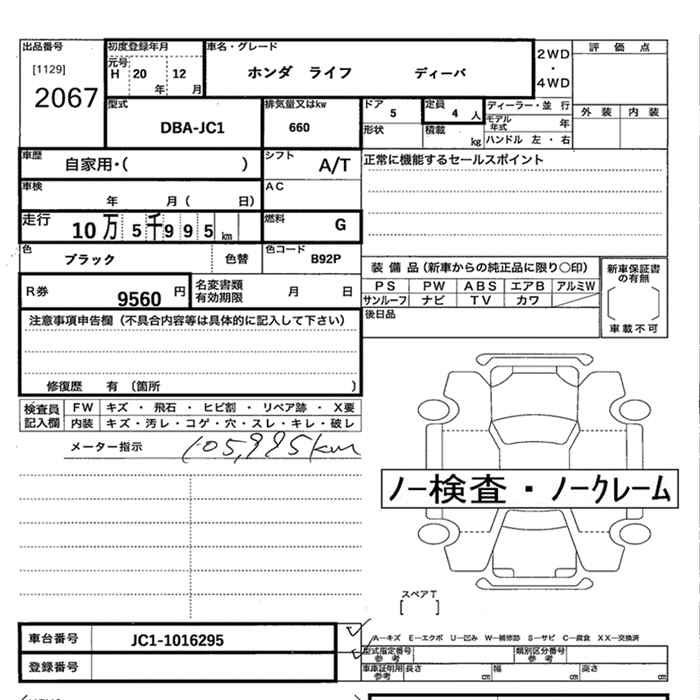 出品番号 初度登録年月 車名・グレード 2WD・4WD 評価点
[1129] 元号 H 20 年 12 月 ホンダ ライフ ディーバ
2067
型式 DBA-JC1 排気量又はkw 660 ドア 5 定員 4 人 ディーラー・並 行 外装 内装
形状 積載 kg モデル年式 年
ハンドル 左・右
車歴 自家用・( ) シフト A/T 正常に機能するセールスポイント
車検 年 月( 日) AC
走行 10万 5千995 km 燃料 G
色 ブラック 色替 色コード B92P
装備品(新車からの純正品に限り〇印) 新車保証書の有無
PS PW ABS エアB アルミW
サンルーフ ナビ TV カワ
[ ]
車載不可
R券 9560 円 名変書類有効期限 月 日
後日品
注意事項申告欄(不具合内容等は具体的に記入して下さい)
修復歴 有(箇所 )
検査員記入欄 FW キズ・飛石・ヒビ割・リペア跡・X要
内装 キズ・汚レ・コゲ・穴・スレ・キレ・破レ
メーター指示 105,995km
ノー検査・ノークレーム
スペアT
[ ]
車台番号 JC1-1016295
A―キズ E―エクボ U―凹み W―補修跡 S―サビ C―腐食 XX―交換済
型式指定番号 参考 類別区分番号 参考
登録番号 車庫証明用 参考 長さ 幅 高さ